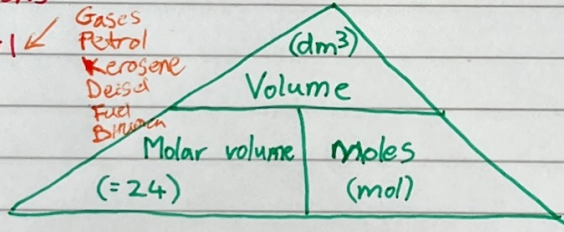 Gases
Petrol
Kerosene
Deisel
Fuel
Bitumen
(dm³)
Volume
Molar volume
(=24)
Moles
(mol)